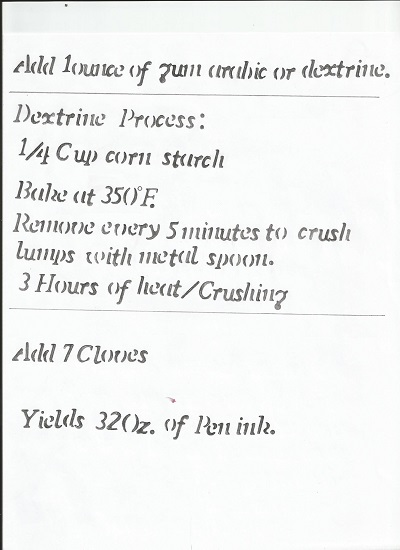 Add 1ounce of gum arabic or dextrine.
Dextrine Process:
1/4 Cup corn starch
Bake at 350°F.
Remove every 5 minutes to crush
lumps with metal spoon.
3 Hours of heat/Crushing
Add 7 Cloves
Yields 32 Oz. of Pen ink.